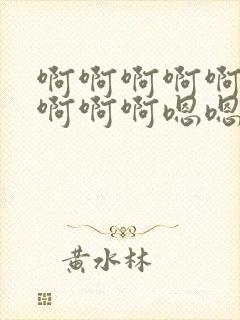 啊啊啊啊啊
啊啊啊嗯嗯
黄水林